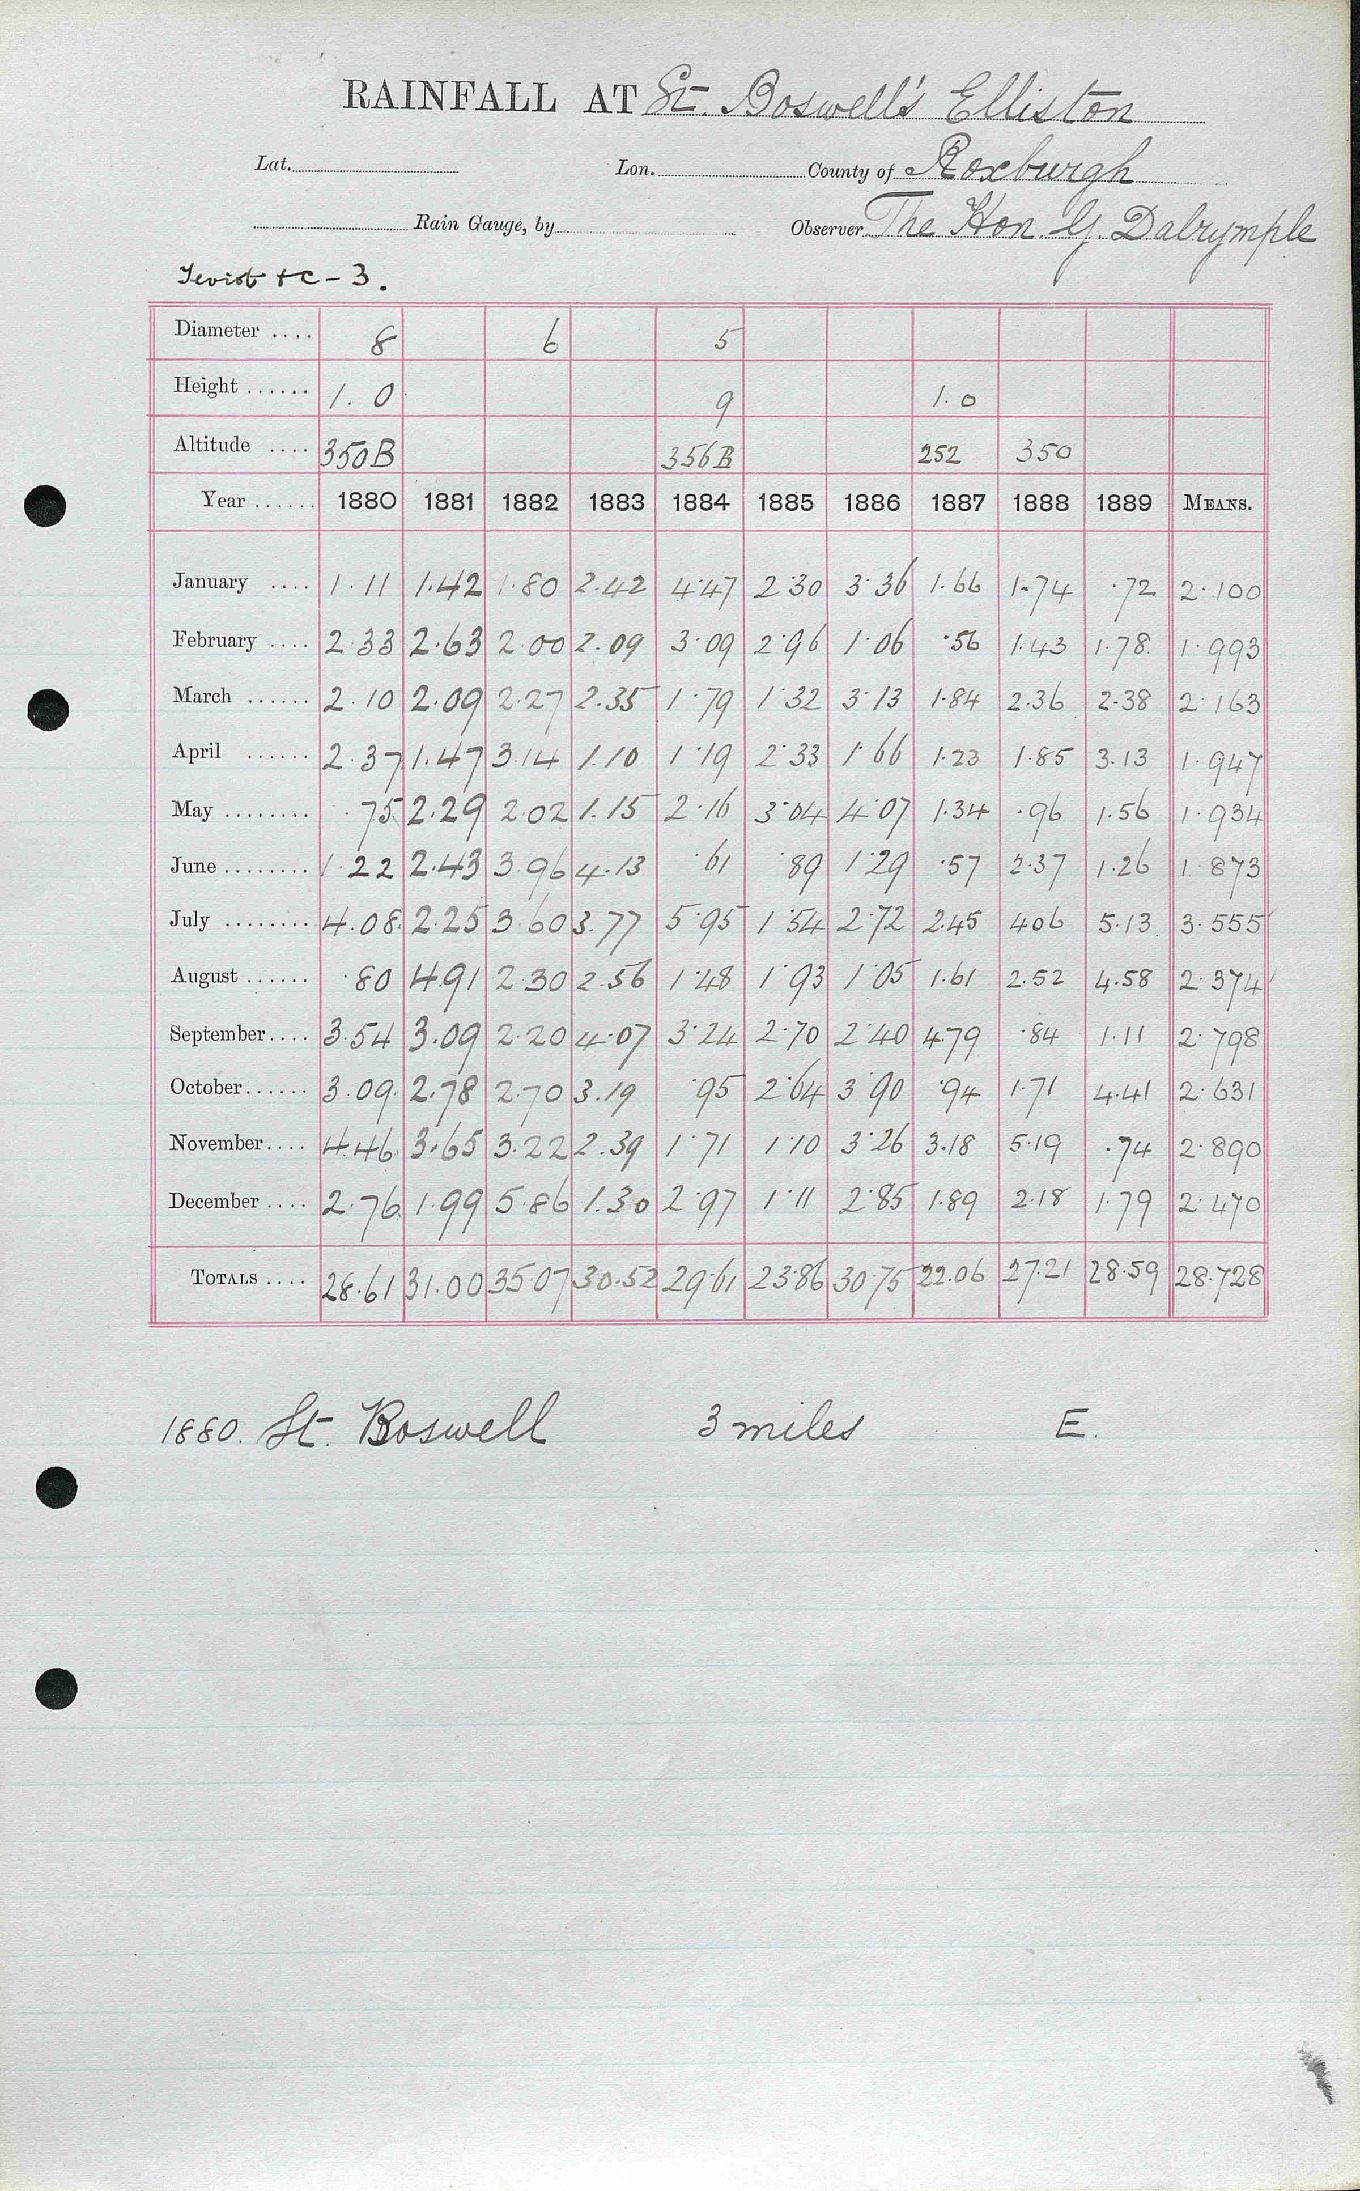 RAINFALL AT St. Boswell's Elliston
Lat. Lon. County of Roxburgh
Rain Gauge, by Observer The Hon. G. Dalrymple
Teviot &c - 3.
Diameter .... 8 6 5
Height ...... 1. 0 9 1. 0
Altitude .... 350B 356B 252 350
Year ...... 1880 1881 1882 1883 1884 1885 1886 1887 1888 1889 MEANS.
January .... 1.11 1.42 1.80 2.42 4.47 2.30 3.36 1.66 1.74 .72 2.100
February .... 2.33 2.63 2.00 2.09 3.09 2.96 1.06 .56 1.43 1.78 1.993
March ...... 2.10 2.09 2.27 2.35 1.79 1.32 3.13 1.84 2.36 2.38 2.163
April ...... 2.37 1.47 3.14 1.10 1.19 2.33 1.66 1.23 1.85 3.13 1.947
May ........ .75 2.29 2.02 1.15 2.16 3.04 4.07 1.34 .96 1.56 1.934
June ........ 1.22 2.43 3.96 4.13 .61 .89 1.29 .57 2.37 1.26 1.873
July ........ 4.08 2.25 3.60 3.77 5.95 1.54 2.72 2.45 4.06 5.13 3.555
August ...... .80 4.91 2.30 2.56 1.48 1.93 1.05 1.61 2.52 4.58 2.374
September.... 3.54 3.09 2.20 4.07 3.24 2.70 2.40 4.79 .84 1.11 2.798
October...... 3.09 2.78 2.70 3.19 .95 2.64 3.90 .94 1.71 4.41 2.631
November.... 4.46 3.65 3.22 2.39 1.71 1.10 3.26 3.18 5.19 .74 2.890
December .... 2.76 1.99 5.86 1.30 2.97 1.11 2.85 1.89 2.18 1.79 2.470
TOTALS .... 28.61 31.00 35.07 30.52 29.61 23.86 30.75 22.06 27.21 28.59 28.728
1880. St. Boswell 3 miles E.